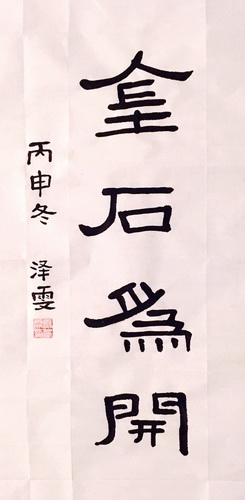 金石為開
丙申冬 泽雯